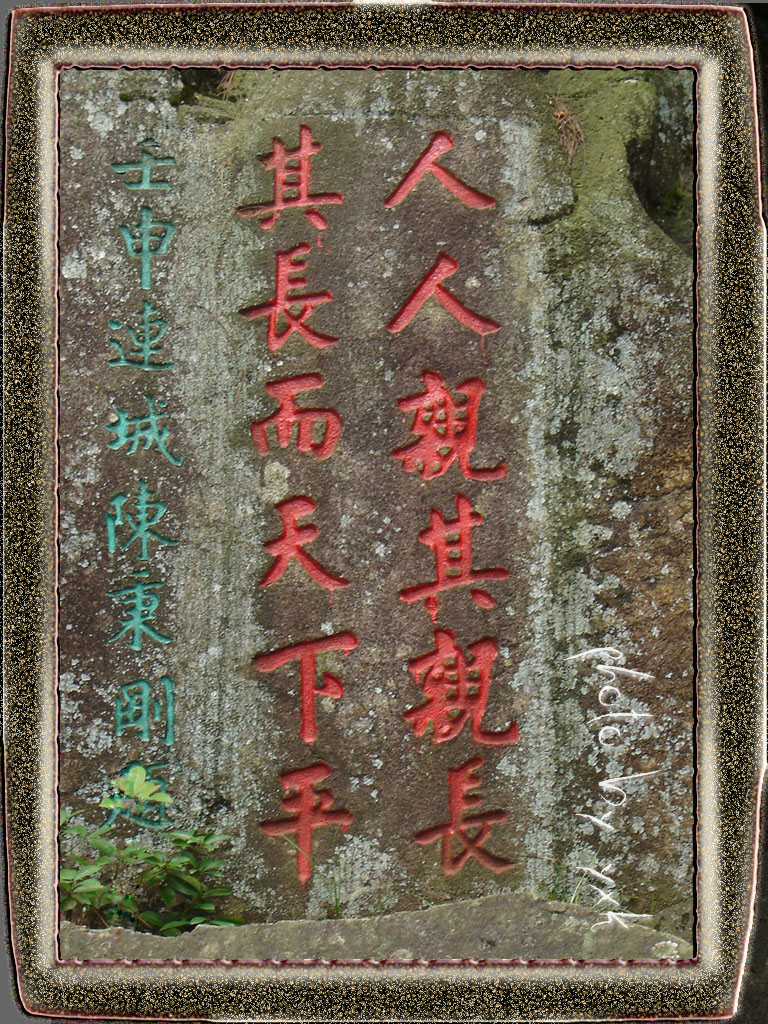 人人親其親長
其長而天下平
壬申連城陳秉剛題
photo by yxk